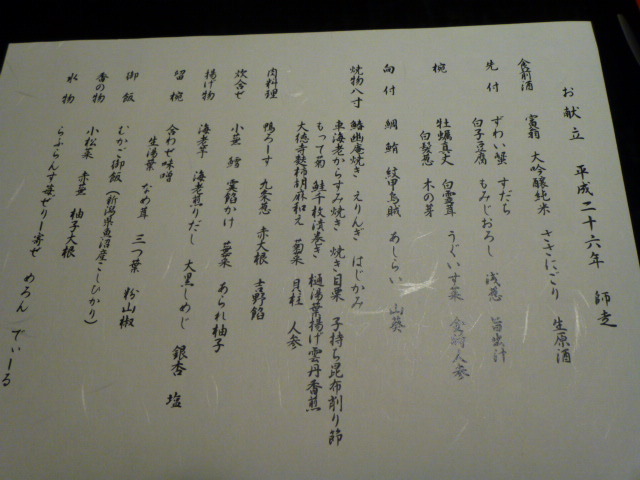 お献立 平成二十六年 師走
食前酒 富翁 大吟醸純米 ささにごり 生原酒
先付 ずわい蟹 すだち
白子豆腐 もみじおろし 浅葱 旨出汁
椀 牡蠣真丈 白霊茸 うぐいす菜 金時人参
白髪葱 木の芽
向付 鯛 鮪 紋甲烏賊 あしらい 山葵
焼物八寸 鰆幽庵焼き えりんぎ はじかみ
車海老からすみ焼き 焼き目栗 子持ち昆布削り節
もって菊 鮭千枚漬巻き 樋湯葉揚げ雲丹香煎
大徳寺麩柿胡麻和え 菊菜 月桂 人参
肉料理 鴨ろーす 九条葱 赤大根 吉野餡
炊合せ 小蕪 鱈 雲餡かけ 菊菜 あられ柚子
揚げ物 海老芋 海老煎りだし 大黒しめじ 銀杏 塩
留椀 合わせ味噌
生湯葉 なめ茸 三つ葉 粉山椒
御飯 むかご御飯(新潟県魚沼産こしひかり)
香の物 小松菜 赤蕪 柚子大根
水物 らふらんす茶ぜりー寄せ めろん でぃーる